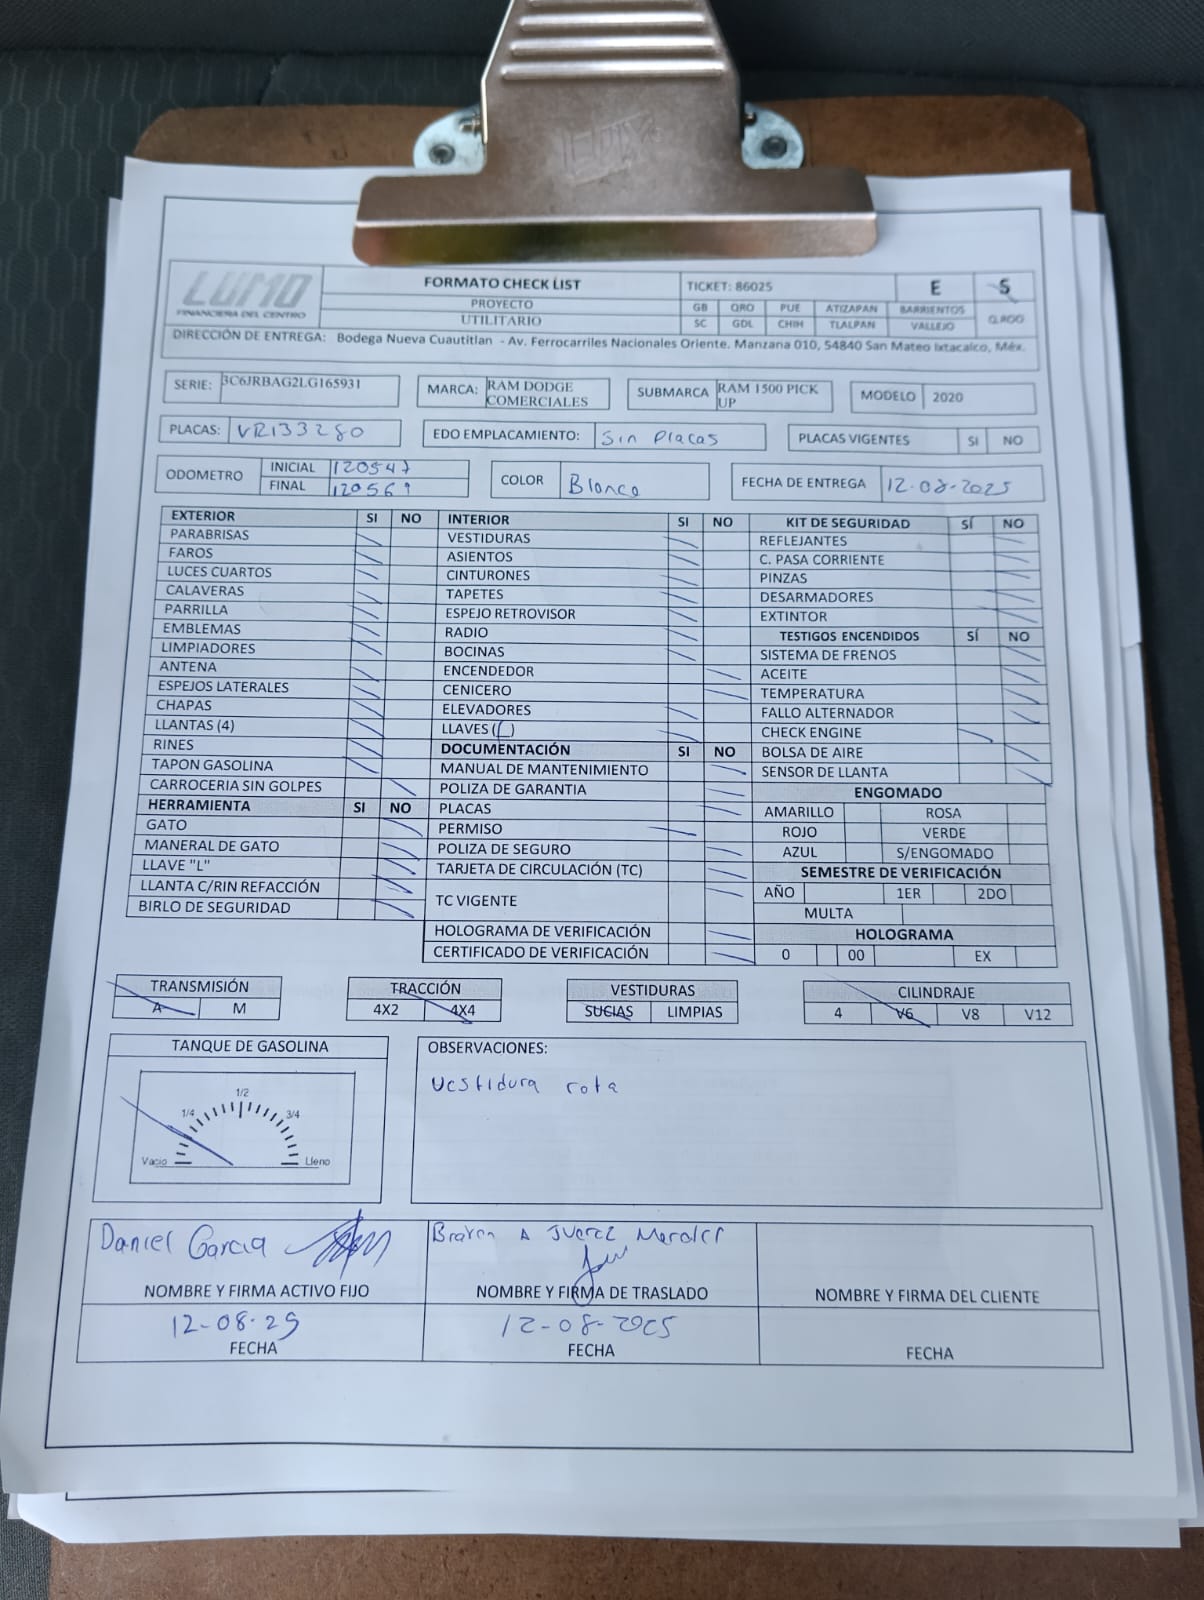 LUMO
FINANCIERA DEL CENTRO
FORMATO CHECK LIST
PROYECTO
UTILITARIO
TICKET: 86025 E S
GB QRO PUE ATIZAPAN BARRIENTOS Q.ROO
SC GDL CHIH TLALPAN VALLEJO
DIRECCIÓN DE ENTREGA: Bodega Nueva Cuautitlan - Av. Ferrocarriles Nacionales Oriente. Manzana 010, 54840 San Mateo Ixtacalco, Méx.
SERIE: 3C6JRBAG2LG165931 MARCA: RAM DODGE COMERCIALES SUBMARCA RAM 1500 PICK UP MODELO 2020
PLACAS: VR133280 EDO EMPLACAMIENTO: Sin Placas PLACAS VIGENTES SI NO
ODOMETRO INICIAL 120547
FINAL 120569
COLOR Blanco FECHA DE ENTREGA 12-08-2025
EXTERIOR SI NO
PARABRISAS
FAROS
LUCES CUARTOS
CALAVERAS
PARRILLA
EMBLEMAS
LIMPIADORES
ANTENA
ESPEJOS LATERALES
CHAPAS
LLANTAS (4)
RINES
TAPON GASOLINA
CARROCERIA SIN GOLPES
HERRAMIENTA SI NO
GATO
MANERAL DE GATO
LLAVE "L"
LLANTA C/RIN REFACCIÓN
BIRLO DE SEGURIDAD
INTERIOR SI NO
VESTIDURAS
ASIENTOS
CINTURONES
TAPETES
ESPEJO RETROVISOR
RADIO
BOCINAS
ENCENDEDOR
CENICERO
ELEVADORES
LLAVES ( )
DOCUMENTACIÓN SI NO
MANUAL DE MANTENIMIENTO
POLIZA DE GARANTIA
PLACAS
PERMISO
POLIZA DE SEGURO
TARJETA DE CIRCULACIÓN (TC)
TC VIGENTE
HOLOGRAMA DE VERIFICACIÓN
CERTIFICADO DE VERIFICACIÓN
KIT DE SEGURIDAD SÍ NO
REFLEJANTES
C. PASA CORRIENTE
PINZAS
DESARMADORES
EXTINTOR
TESTIGOS ENCENDIDOS SÍ NO
SISTEMA DE FRENOS
ACEITE
TEMPERATURA
FALLO ALTERNADOR
CHECK ENGINE
BOLSA DE AIRE
SENSOR DE LLANTA
ENGOMADO
AMARILLO ROSA
ROJO VERDE
AZUL S/ENGOMADO
SEMESTRE DE VERIFICACIÓN
AÑO 1ER 2DO
MULTA
HOLOGRAMA
0 00 EX
TRANSMISIÓN
A M
TRACCIÓN
4X2 4X4
VESTIDURAS
SUCIAS LIMPIAS
CILINDRAJE
4 V6 V8 V12
TANQUE DE GASOLINA
1/2
1/4 3/4
Vacio Lleno
OBSERVACIONES:
Vestidura rota
Daniel Garcia
NOMBRE Y FIRMA ACTIVO FIJO
12-08-25
FECHA
A Juarez
NOMBRE Y FIRMA DE TRASLADO
12-08-2025
FECHA
NOMBRE Y FIRMA DEL CLIENTE
FECHA